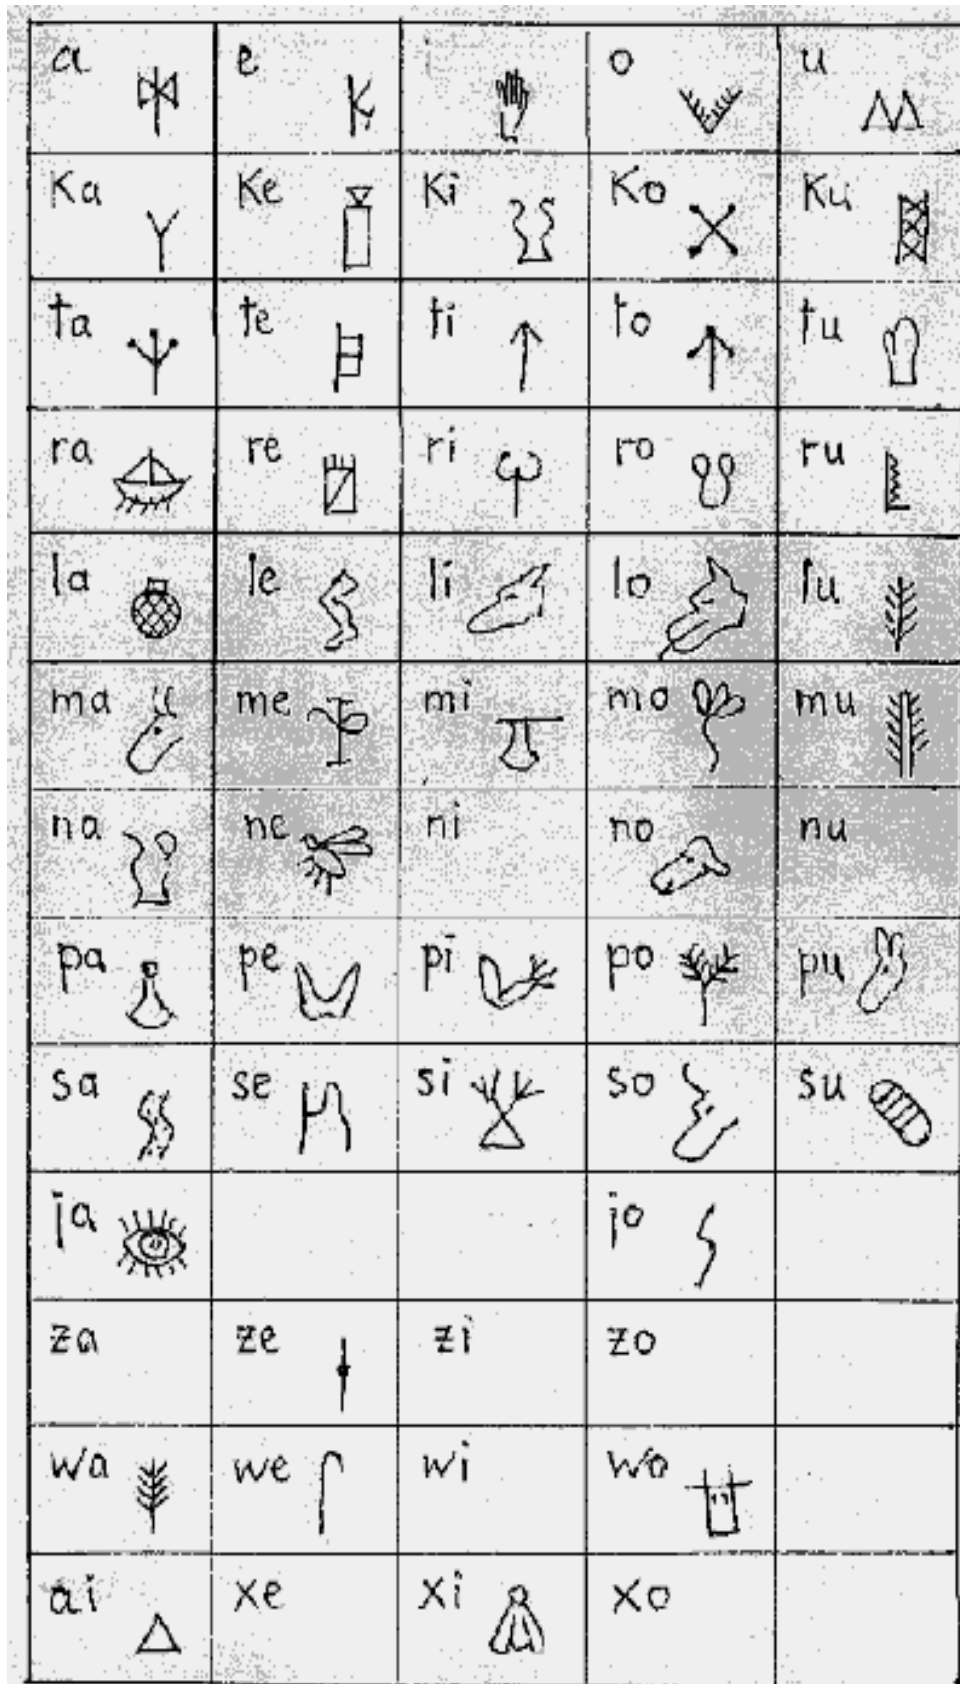 a e i o u
Ka Ke Ki Ko Ku
ta te ti to tu
ra re ri ro ru
la le li lo lu
ma me mi mo mu
na ne ni no nu
pa pe pi po pu
sa se si so su
ja jo
za ze zi zo
wa we wi wo
ai xe xi xo